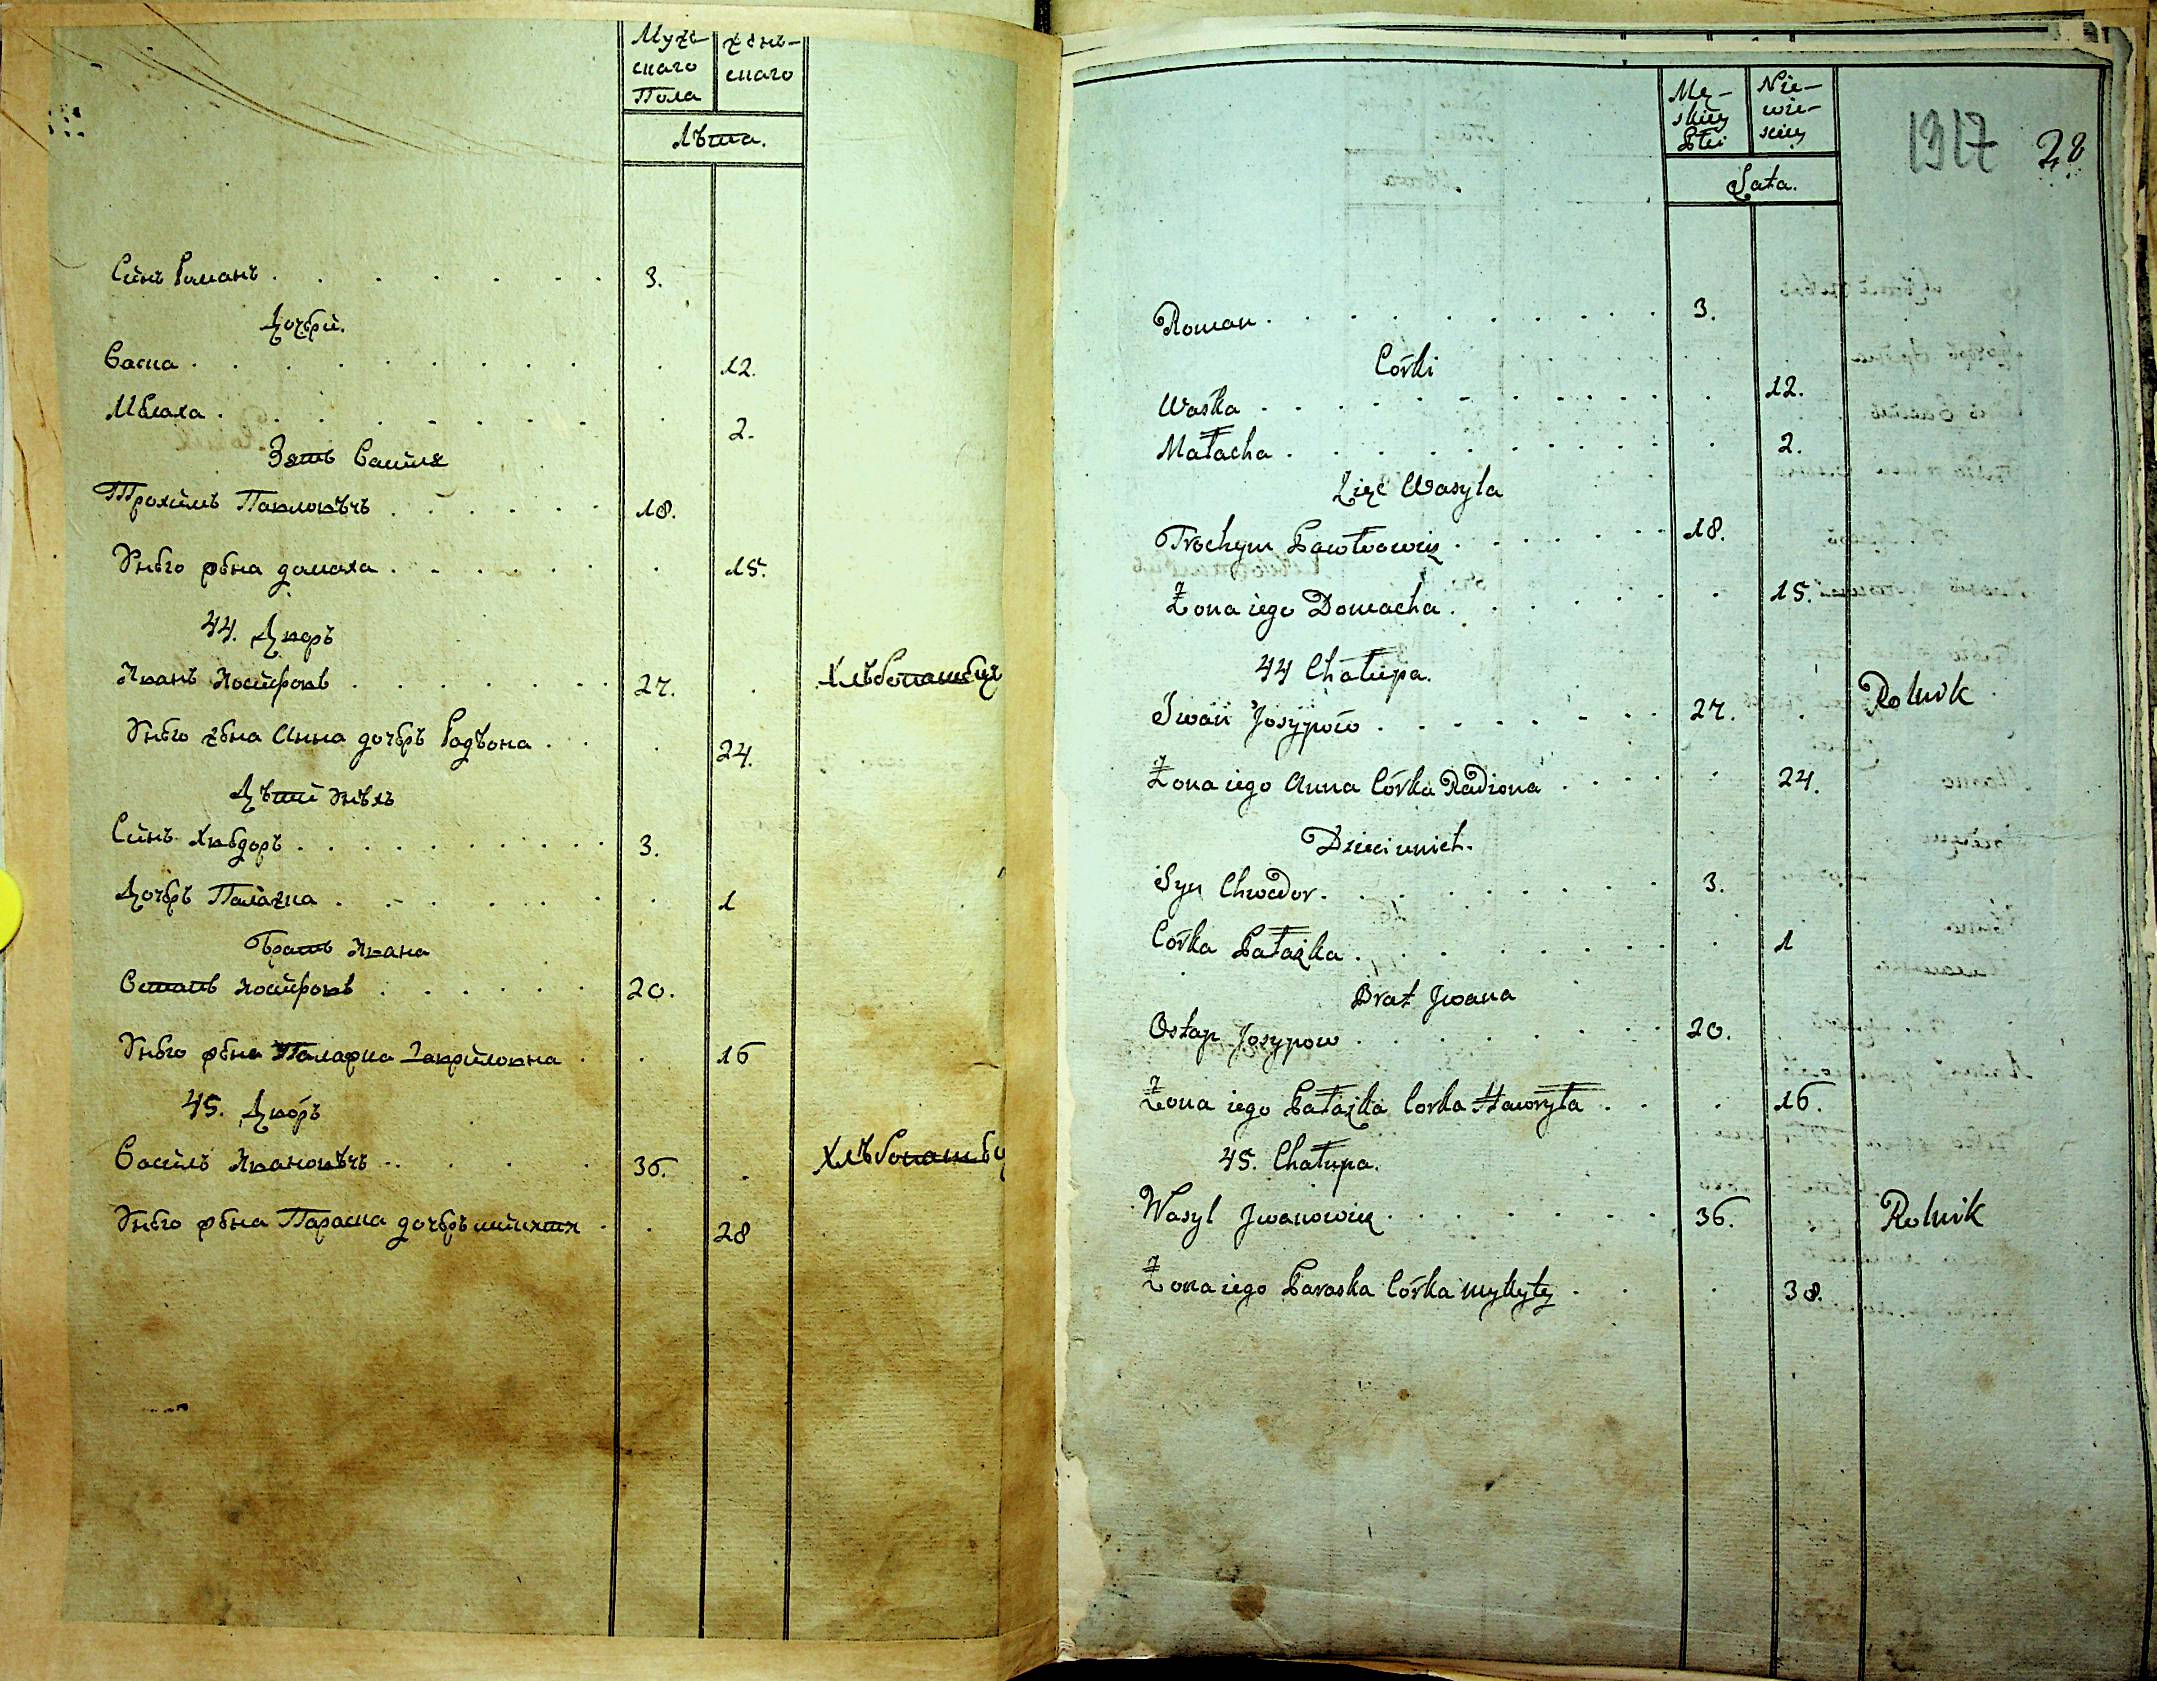 Мужескаго Пола
женскаго
Лѣта.
Синъ Романъ. 3.
Дочери.
Васка. 12.
Малаха. 2.
Зять Василя
Трохимъ Павловичъ. 18.
У него жена домаха. 15.
44. Дворъ
Иванъ Йосифовъ. 27. Хлѣбопашец
У него жена Анна дочерь Радѣона. 24.
Дѣти У нѣхъ
Синъ Хведоръ. 3.
Дочерь Палажка. 1
Братъ Ивана
Остапъ Йосифовъ. 20.
У него жена Палажка Гавриловна. 16
45. Дворъ
Василъ Ивановѣчъ. 36. Хлѣбопашец
У него жена Параска дочерь микити. 28
Męskiey Płci
Niewieściey
Lata.
1917 28
Roman. 3.
Córki
Waska. 12.
Małacha. 2.
Zięć Wasyla
Trochym Pawłowicz. 18.
Żona iego Domacha. 15.
44 Chałupa.
Iwan Josypow. 27. Rolnik
Żona iego Anna Córka Radiona. 24.
Dzieci u nich.
Syn Chwedor. 3.
Córka Pałażka. 1
Brat Jwana
Ostap Josypow. 20.
Żona iego Pałażka Corka Hawryła. 16.
45. Chałupa.
Wasyl Jwanowicz. 36. Rolnik
Żona iego Paraska Córka mykyty. 38.